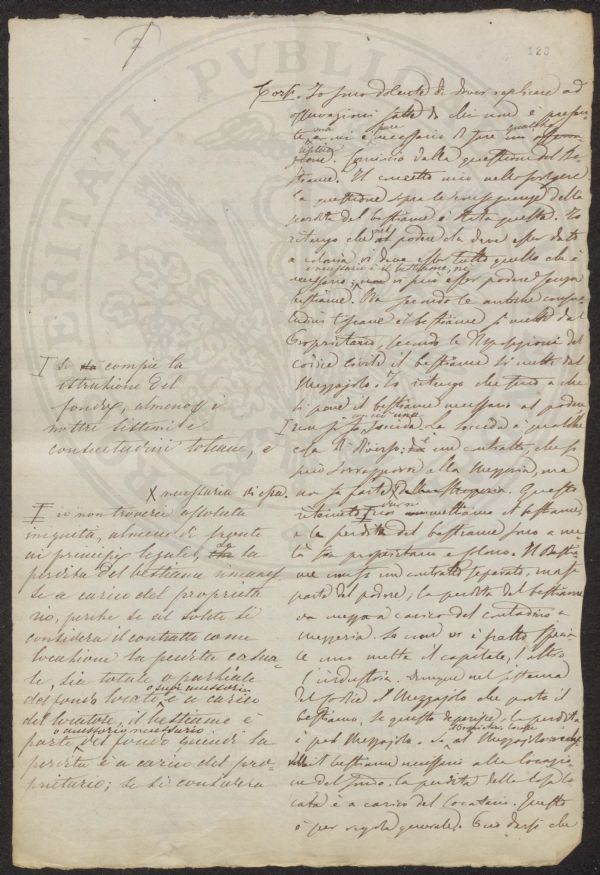 123
Corsi. Io sono dolente di dover replicare ad
osservazioni fatte da chi non è presen
te, ma mi è pure necessario di fare qualche
Comincio dalla questione del be
stiame. Il concetto mio nello svolgere
la questione sopra le conseguenze della
perdita del bestiame è stato questo. Io
ritengo che nel podere che deve esser dato
a colonia vi deva esser tutto quello che è
necessario è il bestiame, nè
necessario; non vi può esser podere senza
bestiame. Ma secondo le antiche consue
tudini toscane il bestiame si mette dal
Proprietario, secondo le disposizioni del
codice civile il bestiame si mette dal
Mezzajolo. Io ritengo che fino a che
si pone il bestiame necessario al podere
non si fa soccida. La soccida è qualche
cosa di diverso: è un contratto, che si
può sovrapporre alla mezzeria, ma
non fa parte della mezzeria. Questo
ritenuto mettiamo il bestiame,
e le perdite del bestiame sono a me
tà fra proprietario e colono. Il Bestia
me non fa un contratto separato, ma fa
parte del podere; la perdita del bestiame
va messa a carico del contadino a
mezzeria. Se non vi è patto specia
le uno mette il capitale, l'altro
l'industria. Dunque nel sistema
del codice il Mezzajolo che porta il
bestiame, se questo perisce, la perdita
è pel Mezzajolo. Se al Mezzajolo
il bestiame necessario alla locazio
ne del fondo, la perdita della cosa lo
cata è a carico del locatario. Questo
è per regola generale. Può darsi che
I Se compie la
istruzione del
fondo, almeno i
nostri sistemi e
consuetudini toscane, e
X necessaria di cpa.
I io non troverei assoluta
iniquità, almeno di fronte
ai principii legali, la
perdita del bestiame rimanes
se a carico del proprieta
rio, perche se al solito si
considera il contratto come
locazione la perdita casua
le, sia totale o parziale
del fondo locato o suoi accessori è a carico
del locatore, il bestiame è
parte o accessorio necessario del fondo quindi la
perdita è a carico del pro
prietario; se si considera